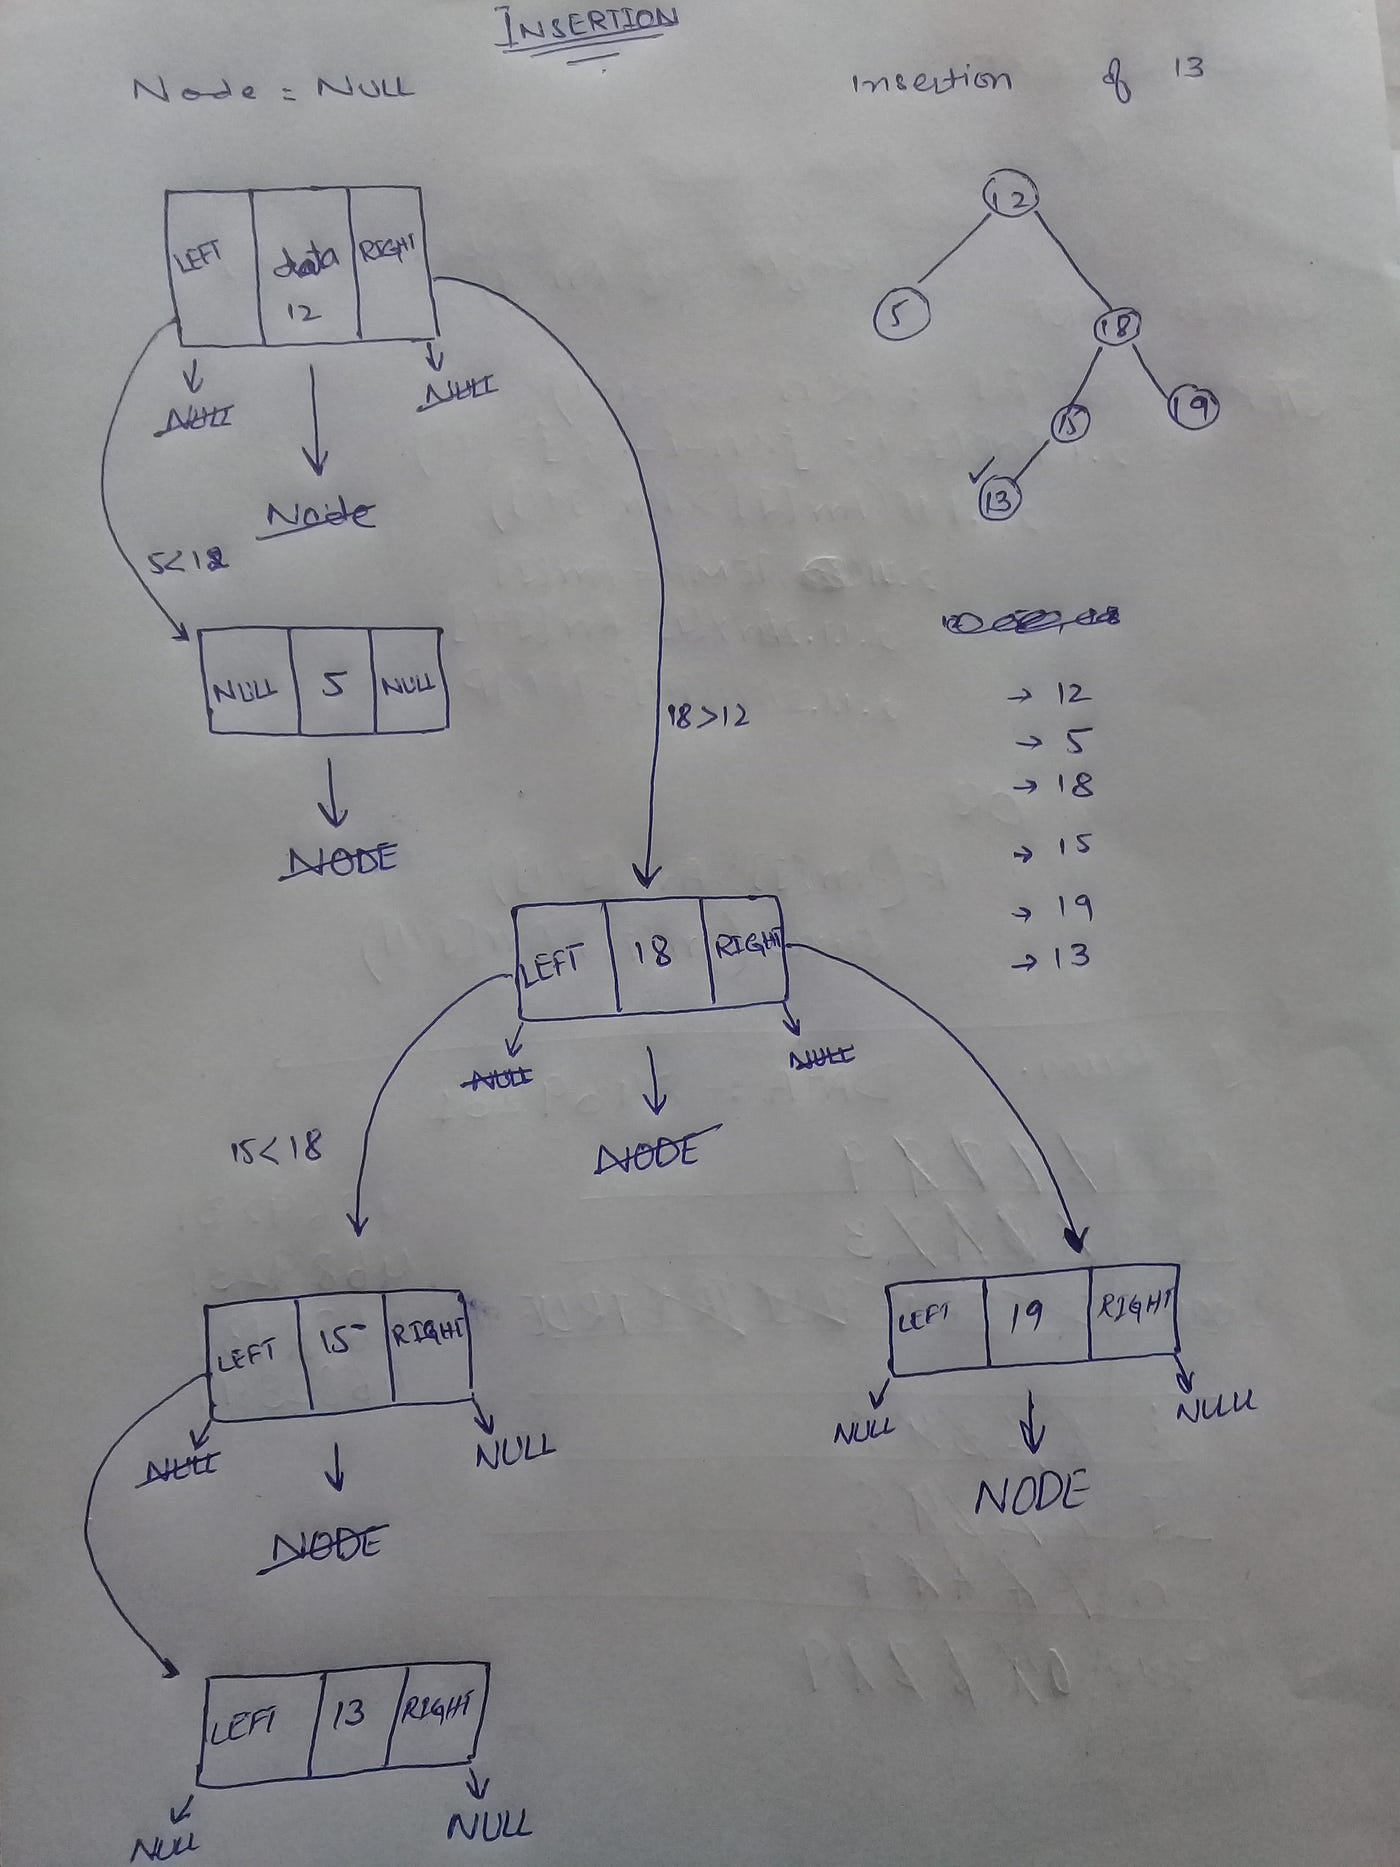 INSERTION
Node = NULL
Insertion of 13
LEFT data RIGHT
12
NULL
NULL
Node
5<12
NULL 5 NULL
NODE
18>12
LEFT 18 RIGHT
NULL
NULL
NODE
15<18
LEFT 15 RIGHT
NULL
NULL
NODE
LEFT 19 RIGHT
NULL
NULL
NODE
LEFT 13 RIGHT
NULL
NULL
12
5
18
15
19
13
→ 12
→ 5
→ 18
→ 15
→ 19
→ 13